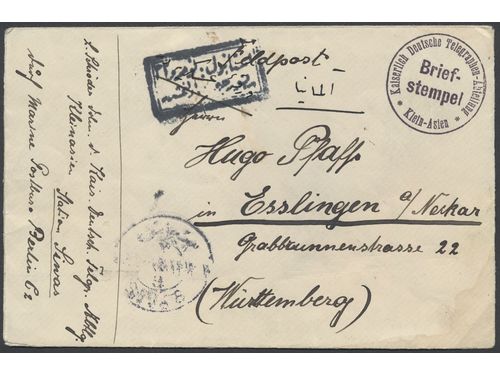 Feldpost
المانيا
Kaiserlich Deutsche Telegraphen-Abteilung
Brief-
stempel
* Klein-Asien *
Herrn
Hugo Pfaff
in Esslingen a/Neckar
Grabbrunnenstrasse 22
(Württemberg)
d. Kais. deutsch. Telegr. Abtlg.
Kleinasien Station Siwas
durch Marine Postbüro Berlin C 2